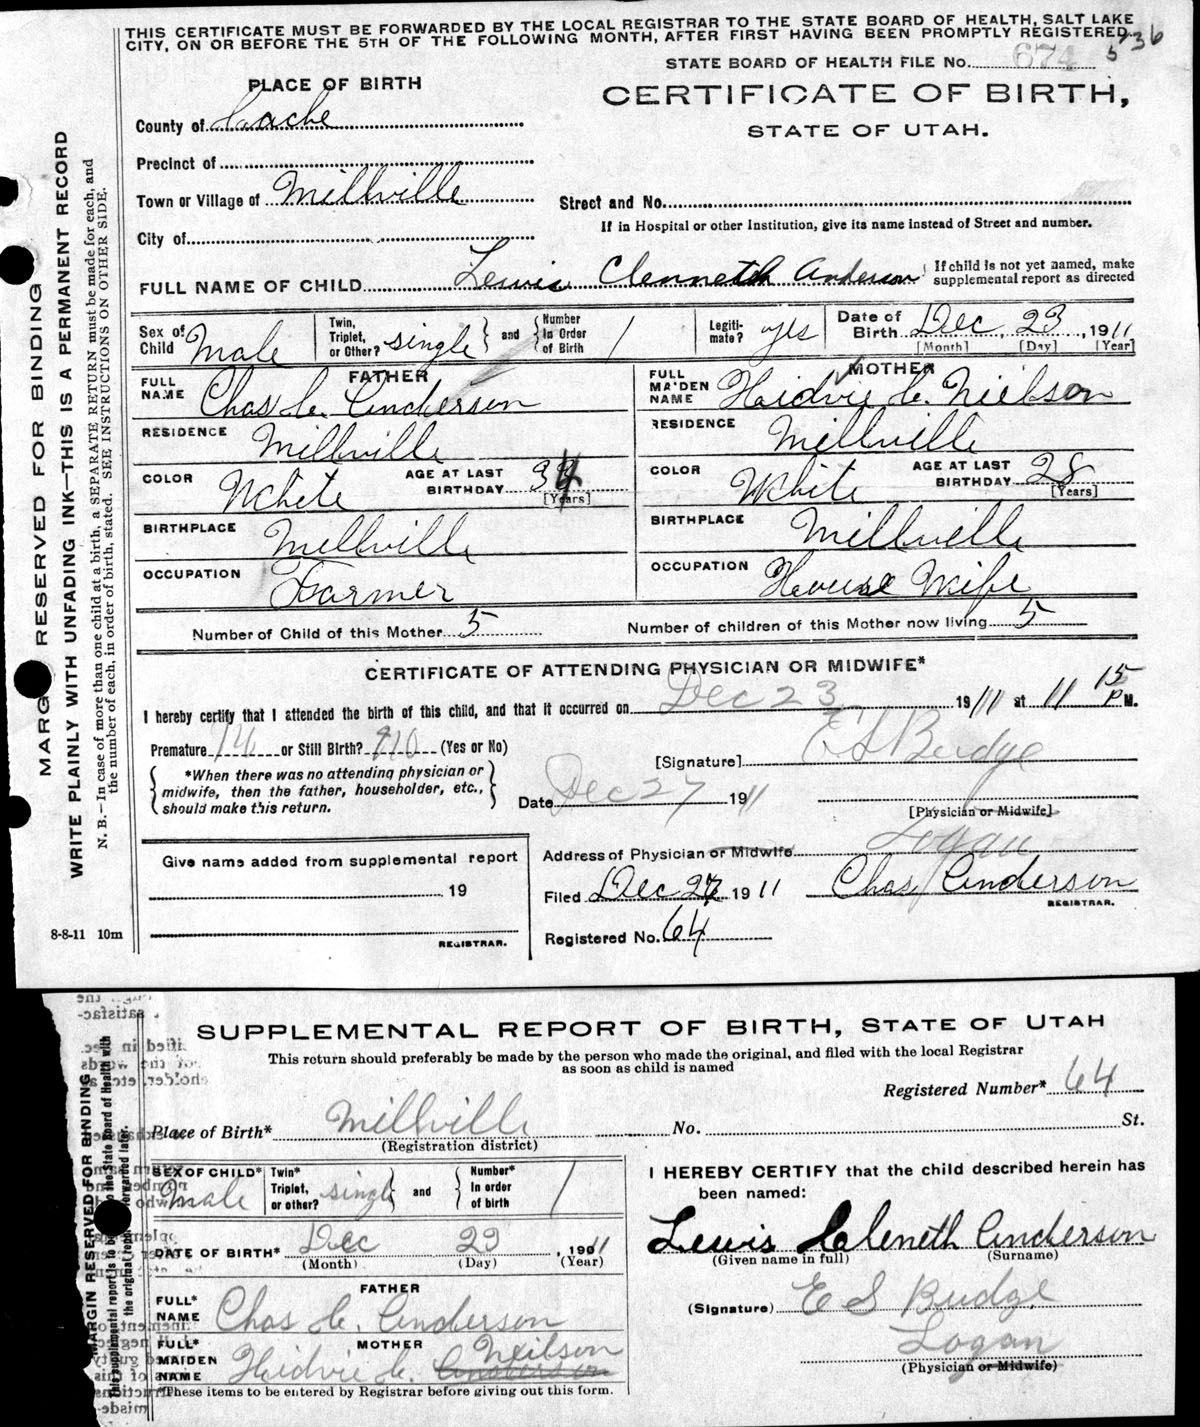 THIS CERTIFICATE MUST BE FORWARDED BY THE LOCAL REGISTRAR TO THE STATE BOARD OF HEALTH, SALT LAKE
CITY, ON OR BEFORE THE 5TH OF THE FOLLOWING MONTH, AFTER FIRST HAVING BEEN PROMPTLY REGISTERED.
STATE BOARD OF HEALTH FILE No. 674
PLACE OF BIRTH
CERTIFICATE OF BIRTH,
STATE OF UTAH.
County of Cache
Precinct of
Town or Village of Millville
Street and No.
If in Hospital or other Institution, give its name instead of Street and number.
City of
FULL NAME OF CHILD Lewis Clenneth Anderson
If child is not yet named, make
supplemental report as directed
Sex of Child Male
Twin, Triplet, or Other? single and Number In Order of Birth 1
Legiti-mate? yes
Date of Birth Dec 23, 1911
[Month] [Day] [Year]
FATHER
FULL NAME Chas C. Anderson
RESIDENCE Millville
COLOR White
AGE AT LAST BIRTHDAY 34
[Years]
BIRTHPLACE Millville
OCCUPATION Farmer
MOTHER
FULL MAIDEN NAME Haidvie C. Nielson
RESIDENCE Millville
COLOR White
AGE AT LAST BIRTHDAY 28
[Years]
BIRTHPLACE Millville
OCCUPATION House Wife
Number of Child of this Mother 5
Number of children of this Mother now living 5
CERTIFICATE OF ATTENDING PHYSICIAN OR MIDWIFE*
I hereby certify that I attended the birth of this child, and that it occurred on Dec 23 1911 at 11 15 P M.
Premature no or Still Birth? no (Yes or No)
*When there was no attending physician or
midwife, then the father, householder, etc.,
should make this return.
[Signature] E S Budge
Date Dec 27 1911
[Physician or Midwife]
Address of Physician or Midwife Logan
Give name added from supplemental report
19
REGISTRAR.
Filed Dec 27 1911 Chas Anderson
REGISTRAR.
Registered No. 64
8-8-11 10m
MARGIN RESERVED FOR BINDING
WRITE PLAINLY WITH UNFADING INK—THIS IS A PERMANENT RECORD
N. B.—In case of more than one child at a birth, a SEPARATE RETURN must be made for each, and
the number of each, in order of birth, stated. SEE INSTRUCTIONS ON OTHER SIDE.
SUPPLEMENTAL REPORT OF BIRTH, STATE OF UTAH
This return should preferably be made by the person who made the original, and filed with the local Registrar
as soon as child is named
Registered Number* 64
Place of Birth* Millville No. St.
(Registration district)
SEX OF CHILD* Male
Twin* Triplet, or other? single and Number* In order of birth 1
DATE OF BIRTH* Dec 23, 1911
(Month) (Day) (Year)
FATHER
FULL* NAME Chas C. Anderson
MOTHER
FULL* MAIDEN NAME Haidvie C. Anderson Neilson
*These items to be entered by Registrar before giving out this form.
I HEREBY CERTIFY that the child described herein has
been named:
Lewis Cleneth Anderson
(Given name in full) (Surname)
(Signature) E S Budge
Logan
(Physician or Midwife)
MARGIN RESERVED FOR BINDING